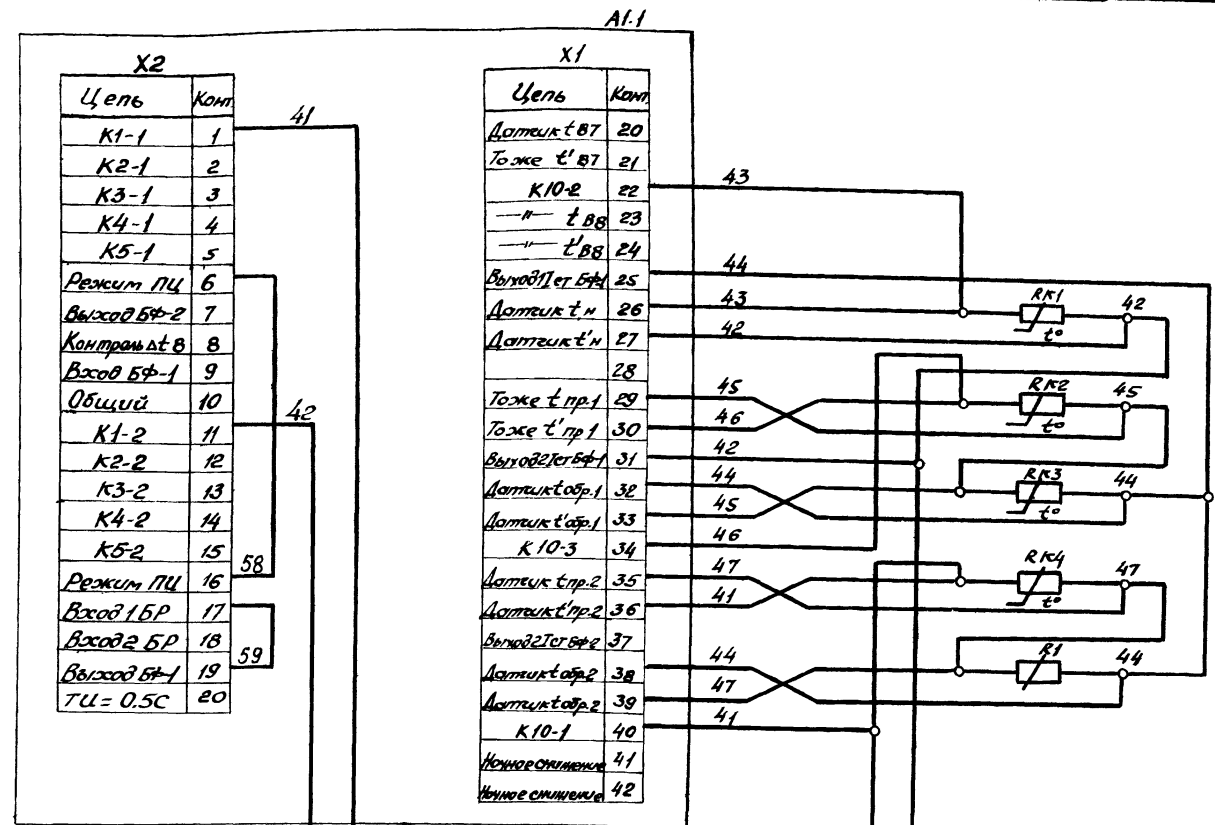 A1.1
X2
Цепь Конт
К1-1 1
К2-1 2
К3-1 3
К4-1 4
К5-1 5
Режим ПЦ 6
Выход БФ-2 7
Контроль Δt В 8
Вход БФ-1 9
Общий 10
К1-2 11
К2-2 12
К3-2 13
К4-2 14
К5-2 15
Режим ПЦ 16
Вход 1 БР 17
Вход 2 БР 18
Выход БФ-1 19
ТЦ = 0.5С 20
41
42
58
59
X1
Цепь Конт
Датчик t В7 20
Тоже t' В7 21
К10-2 22
—"— t В8 23
—"— t' В8 24
Выход 1 Iст БФ-1 25
Датчик t н 26
Датчик t' н 27
28
Тоже t пр.1 29
Тоже t' пр1 30
Выход 2 Iст БФ-1 31
Датчик t обр.1 32
Датчик t' обр.1 33
К10-3 34
Датчик t пр.2 35
Датчик t' пр.2 36
Выход 2 Iст БФ-2 37
Датчик t обр.2 38
Датчик t обр.2 39
К10-1 40
Ночное снижение 41
Ночное снижение 42
43
44
43
42
45
46
42
44
45
46
47
41
44
47
41
RK1 t° 42
RK2 t° 45
RK3 t° 44
RK4 t° 47
R1 44